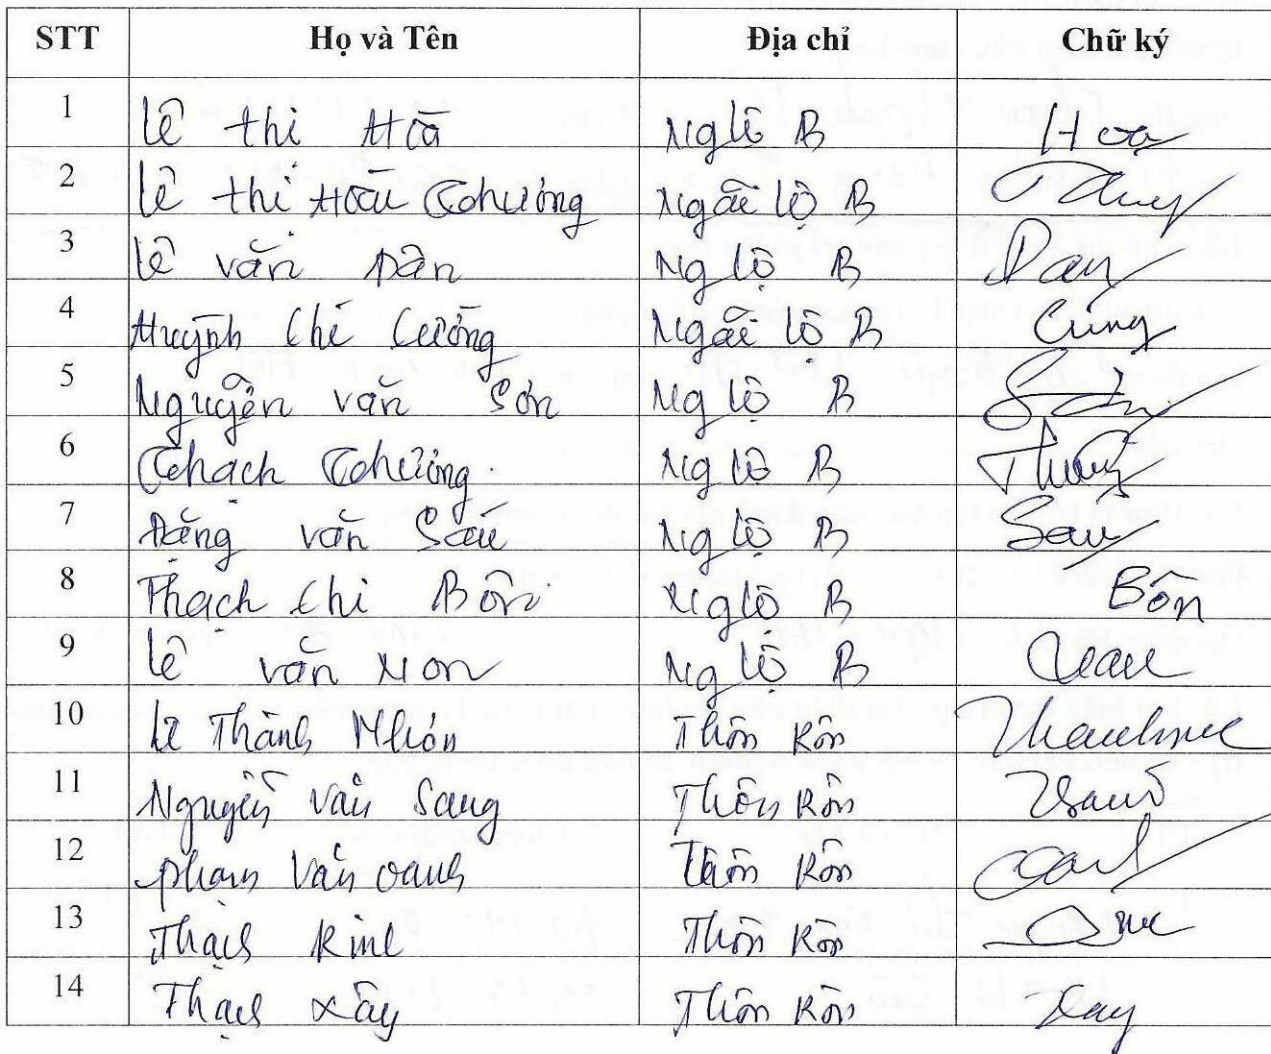 STT Họ và Tên Địa chỉ Chữ ký
1 Lê Thị Hoà Ng Lộ B Hoa
2 Lê Thị Hoài Thương Ngãi Lộ B
3 Lê Văn Dân Ng Lộ B Dan
4 Huỳnh Chí Cường Ngãi Lộ B Cường
5 Nguyễn Văn Sơn Ng Lộ B Sơn
6 Thạch Thương Ng Lộ B Thương
7 Đặng Văn Sáu Ng Lộ B Sáu
8 Thạch Chi Bôn Ng Lộ B Bôn
9 Lê Văn Non Ng Lộ B
10 Lê Thành Nhơn Thôn Rôn
11 Nguyễn Văn Sang Thôn Rôn
12 Phạm Văn Oanh Thôn Rôn
13 Thạch Thôn Rôn
14 Thạch Xây Thôn Rôn Xay